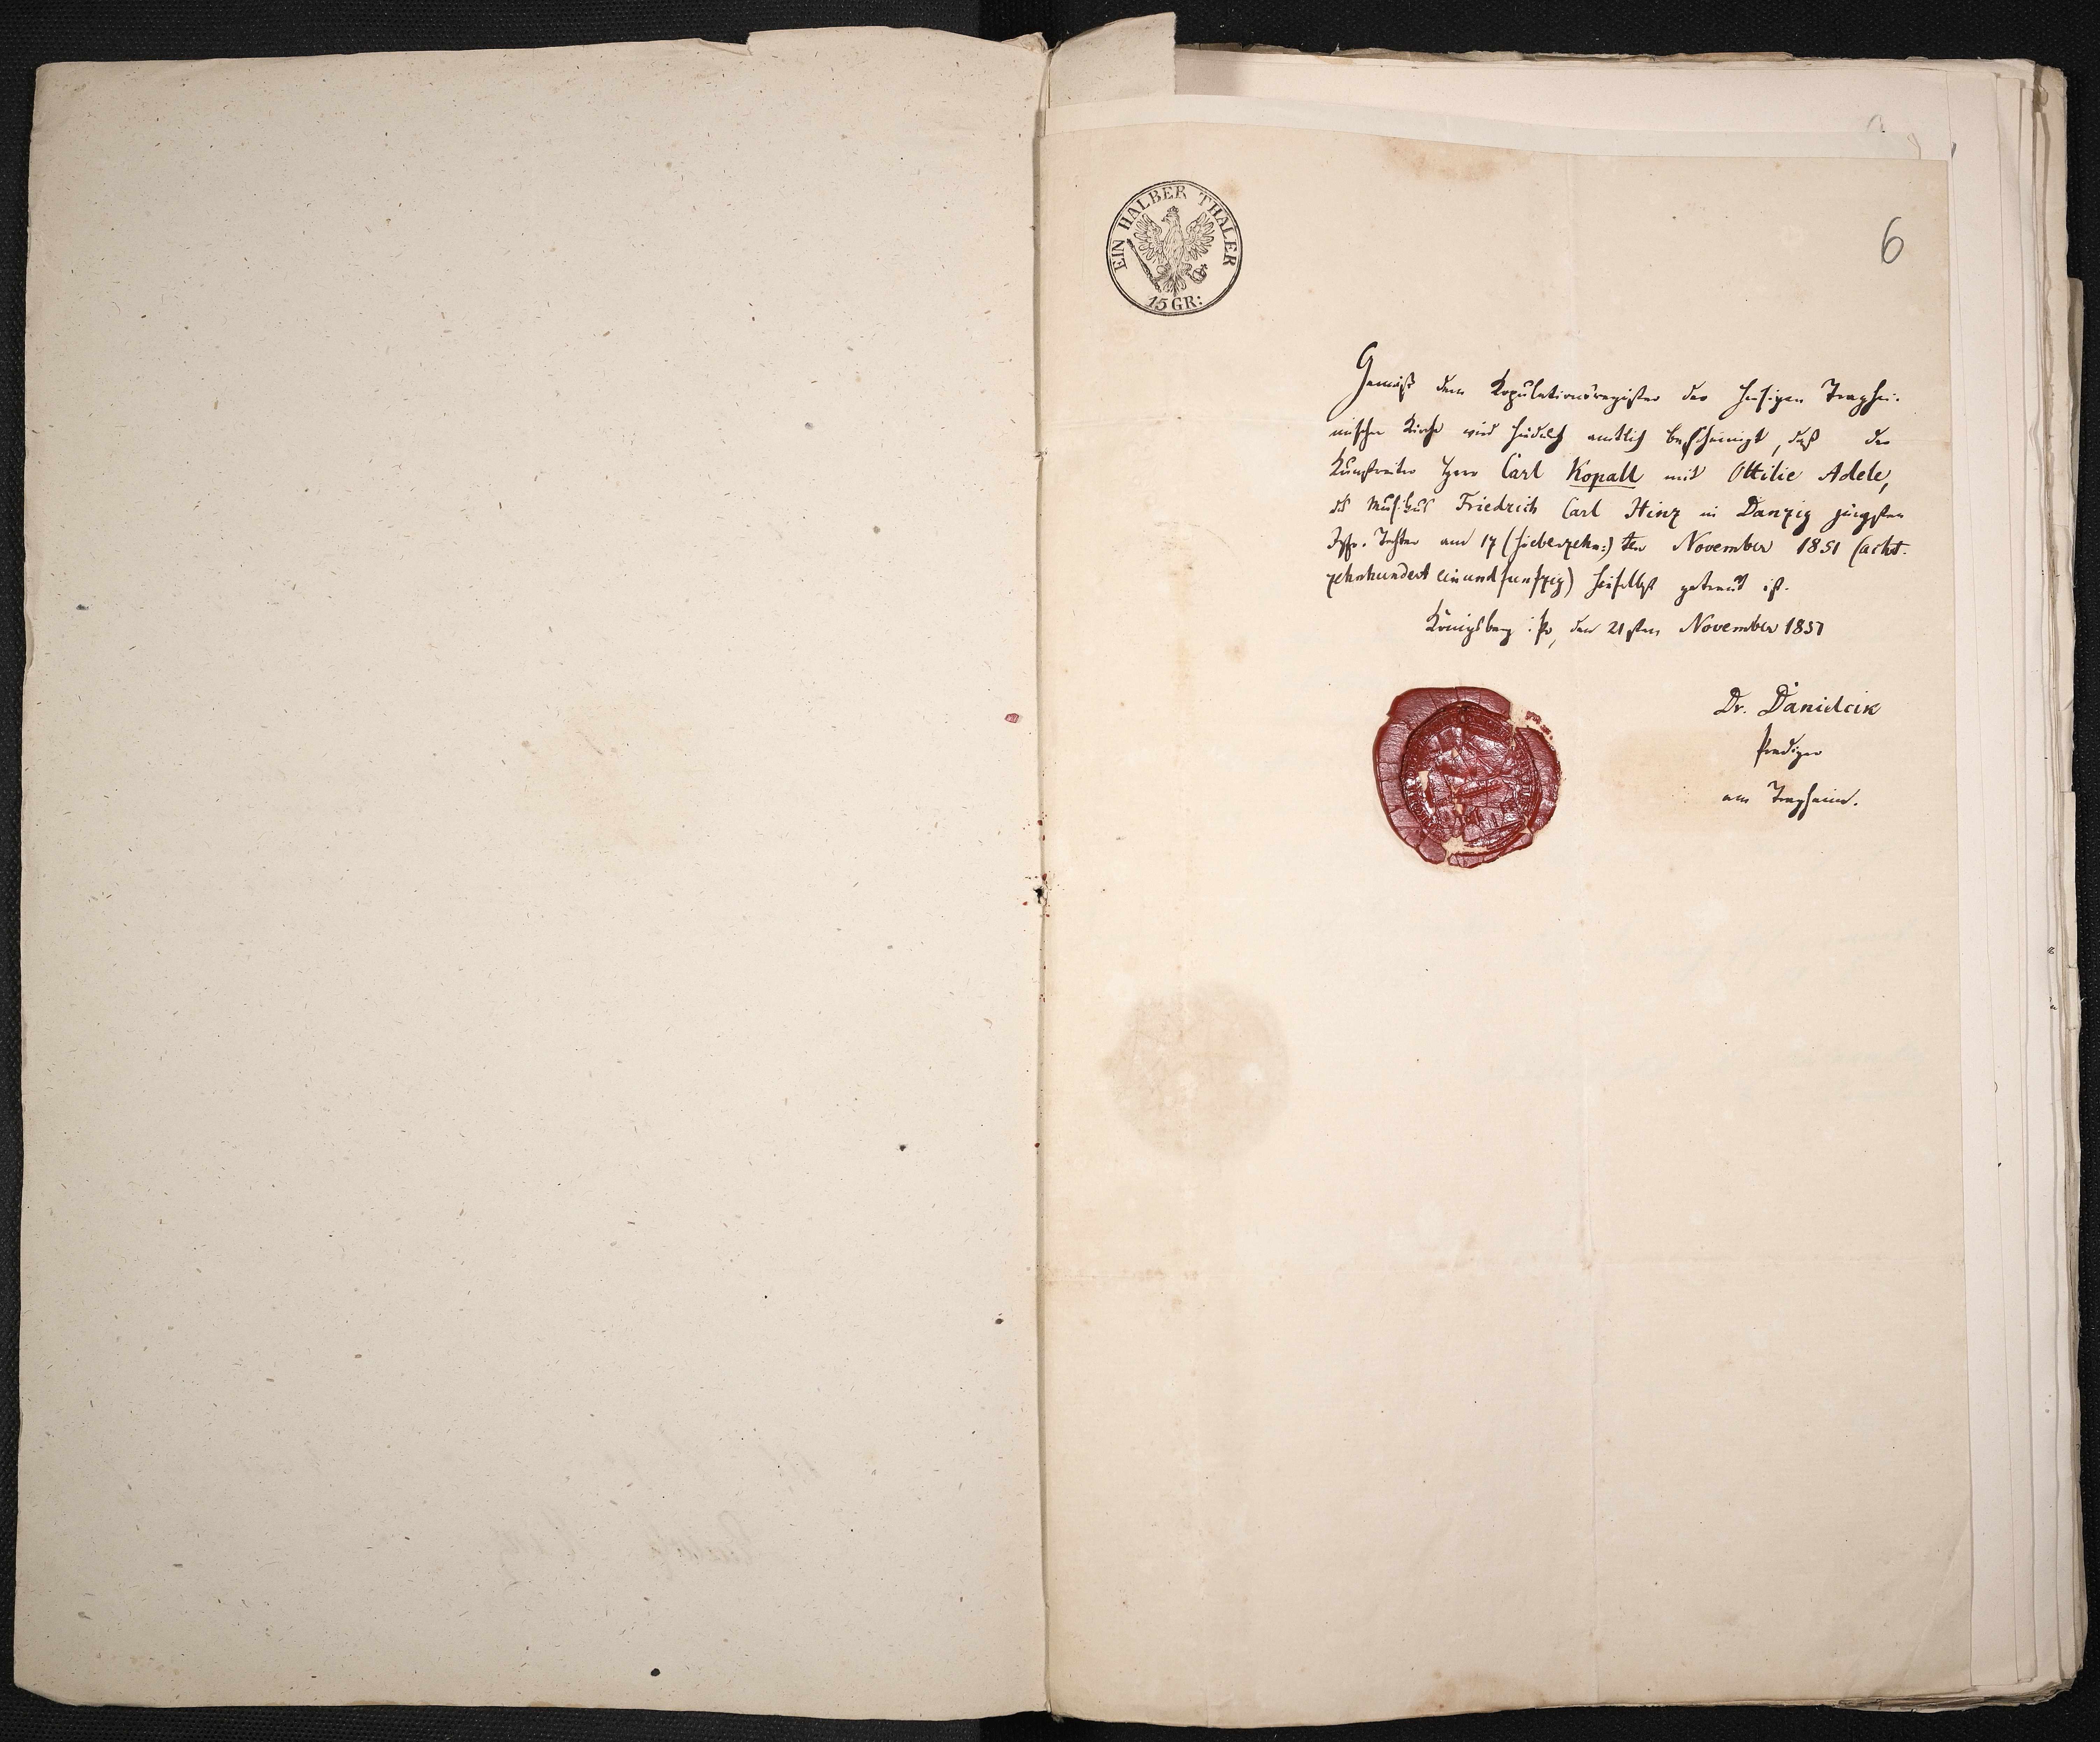 EIN HALBER THALER
15 GR:
6
Gemäß dem Kopulationsregister der hiesigen Traghei-
mischen Kirche wird hiedurch amtlich bescheinigt, daß der
Kunstreiter Herr Carl Kopall mit Ottilie Adele,
des Musikus Friedrich Carl Hinz in Danzig jüngsten
Jgfr. Tochter am 17 (siebenzehn:) ten November 1851 (acht-
zehnhundert einundfunfzig) hieselbst getraut ist.
Königsberg i. Pr, den 21sten November 1851
Dr.
Prediger
am Tragheim.